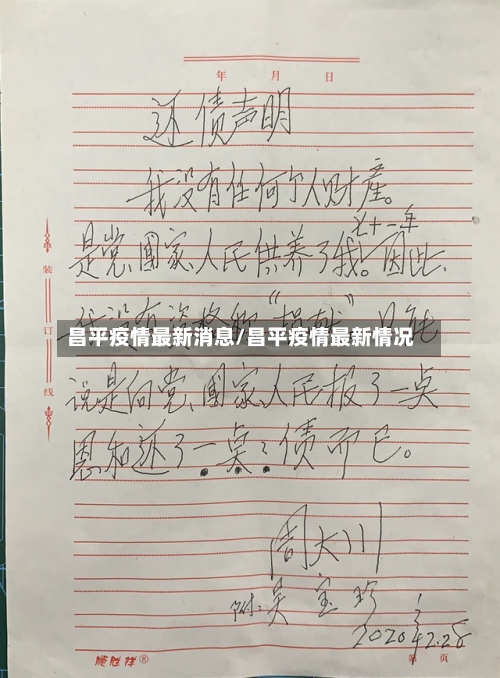 年 月 日
还债声明
我没有任何个人财产。
七十一年
是党、国家、人民供养了我。因此、
昌平疫情最新消息/昌平疫情最新情况
说是向党、国家、人民报了一点
恩和还了一点债而已。
周大川
附:吴宝珍
2020.2.28
装
订
线
顺胜祥®
第 页